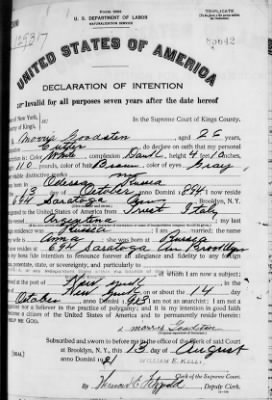 U. S. DEPARTMENT OF LABOR
NATURALIZATION SERVICE
TRIPLICATE
UNITED STATES OF AMERICA
DECLARATION OF INTENTION
Invalid for all purposes seven years after the date hereof
of New York,
In the Supreme Court of Kings County.
ty of Kings,
Morris Goodstein, aged 26 years,
Cutter, do declare on oath that my personal
is: Color White, complexion Dark, height 4 feet 10 inches,
110 pounds, color of hair Brown, color of eyes Gray
able distinctive marks
Odessa Russia
13 day of October, anno Domini 1894; I now reside
694 Saratoga Ave, Brooklyn, N.Y.
igrated to the United States of America from Triest Italy
Argentina; my last
Russia
Anna; she was born at Russia
at 694 Saratoga Ave Brooklyn
my bona fide intention to renounce forever all allegiance and fidelity to any foreign
potentate, state, or sovereignty, and particularly to
of whom I am now a subject;
at the port of New York, in the
New York, on or about the 14 day
October, anno Domini 1913; I am not an anarchist; I am not a
nor a believer in the practice of polygamy; and it is my intention in good faith
become a citizen of the United States of America and to permanently reside therein:
HELP ME GOD.
Morris Goodstein
Subscribed and sworn to before me in the office of the Clerk of said Court
at Brooklyn, N. Y., this 13 day of August
[SEAL] anno Domini 1921
WILLIAM E. KELLY
Clerk
By
Deputy Clerk.